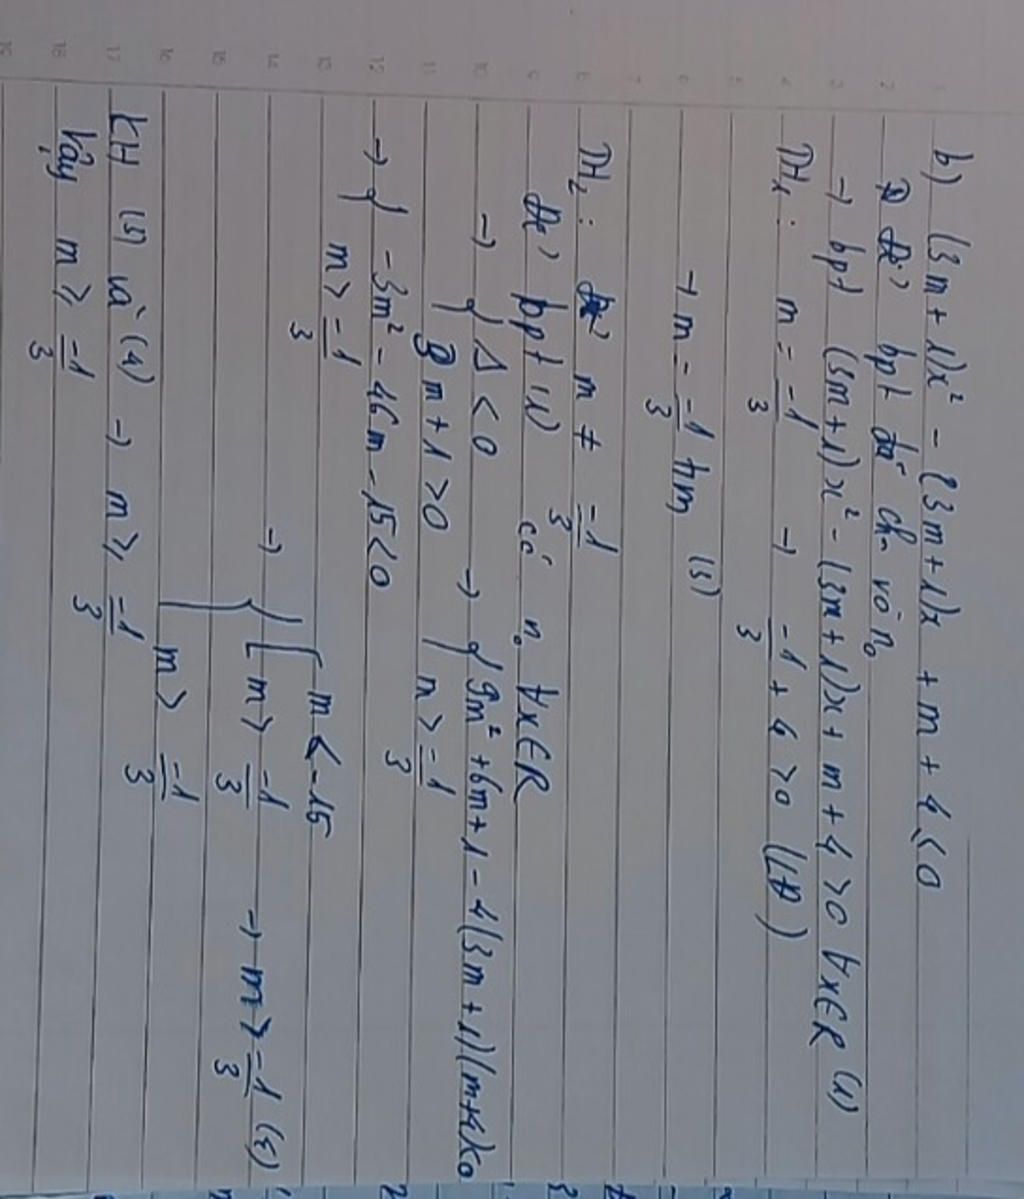 b) (3m + 1)x² - (3m + 1)x + m + 4 < 0
Để bpt đã cho vô n₀
→ bpt (3m+1)x² - (3m+1)x + m + 4 > 0 ∀x∈R (1)
TH₁ : m = -1/3 → -1/3 + 4 > 0 (LĐ)
→ m = -1/3 tm (3)
TH₂ : m ≠ -1/3
Để bpt (1) có n₀ ∀x∈R
→ { Δ < 0 → { 9m² + 6m + 1 - 4(3m + 1)(m+4)<0
3m + 1 > 0 m > -1/3
→ { -3m² - 46m - 15 < 0
m > -1/3
→ { [ m < -15
[ m > -1/3 → m > -1/3 (4)
m > -1/3
KH (3) và (4) → m ≥ -1/3
Vậy m ≥ -1/3